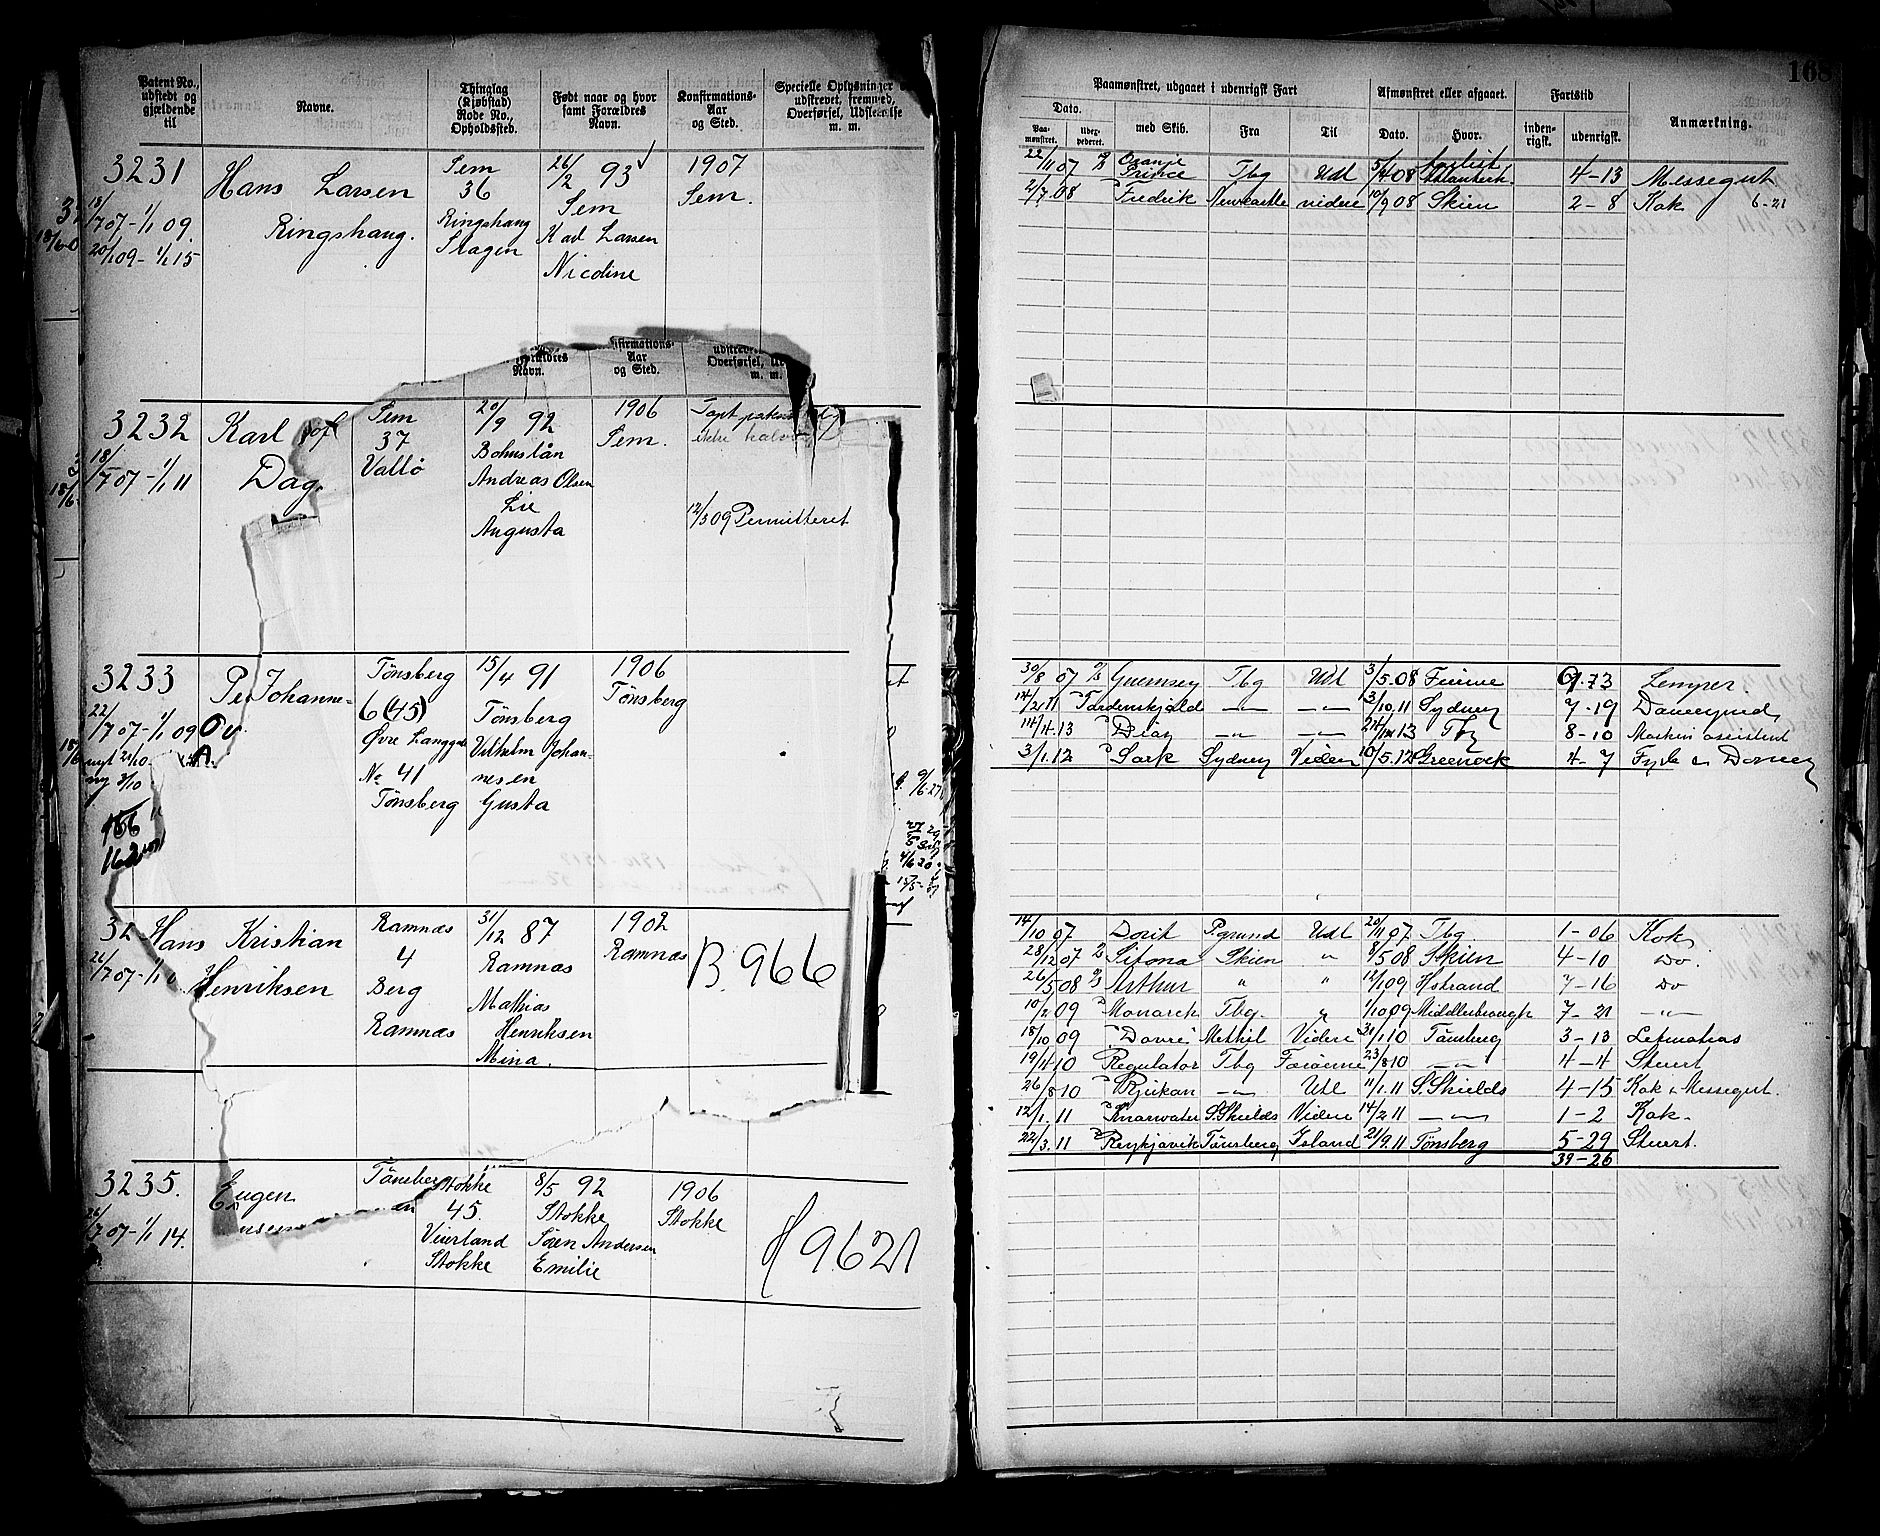 168
Patent No., udstedt og gjældende til
Navne.
Thinglag (Kjøbstad) Rode No., Opholdssted.
Født naar og hvor samt Forældres Navn.
Konfirmations-Aar og Sted.
Specielle Oplysninger udskrevet, fremmed, Overførsel, Udslettelse m. m.
Paamønstret, udgaaet i udenrigsk Fart
Afmønstret eller afgaaet.
Fartstid
Anmærkning.
Dato.
Paamønstret.
med Skib.
Fra
Til
Dato.
Hvor.
indenrigsk.
udenrigsk.
3231
18/7 07 - 1/1 09.
20/1 09 - 1/1 15
Hans Larsen
Ringshaug.
Sem
36
Ringshaug
Slagen
26/2 93
Sem
Karl Larsen
Nicoline
1907
Sem.
22/11 07 Oranje Prince Tbg Udl 5/4 08 4-13 Messegut
2/7 08 Fredrik Newcastle videre 10/9 08 Skien 2-8 Kok 6-21
Forældres Navn.
Konfirmations-Aar og Sted.
Overførsel,
m. m.
3232
18/7 07 - 1/1 11
Karl
Dag.
Sem
37
Vallø
20/9 92
Bohuslån
Andreas Olsen
Lie
Augusta
1906
Sem.
Tapt patent
12/3 09 Permitteret
3233
22/7 07 - 1/1 09
Johanne-
Tönsberg
6 (45)
Øvre Langgade
No 41
Tönsberg
15/4 91
Tönsberg
Vilhelm Johan-
nesen
Gusta
1906
Tönsberg
30/8 07 Guernsey Tbg Udl 3/5 08 9-73 Lemper.
14/2 11 Tordenskjold —"— —"— 3/10 11 Sydney 7-19 Donkeymd
14/4 13 —"— —"— Tbg 8-10 Maskin assistent
3/1 12 Sark Sydney Viden 10/5 12 Greenock 4-7 Fyrb & Donkey
32
22/7 07 - 1/1
Hans Kristian
Henriksen
Ramnæs
4
Berg
Ramnæs
31/12 87
Ramnæs
Mathias
Henriksen
Mina.
1902
Ramnæs
B. 966
14/10 07 Dorit Pgrund Udl 20/11 07 Tbg 1-06 Kok
28/12 07 Sifona Skien " 8/5 08 Skien 4-10 Do.
26/5 08 Arthur " " 12/1 09 Hstrand 7-16 Do
10/2 09 Monarch Tbg. " 1/10 09 Middlesbrough 7-21 —"—
18/10 09 Dovre Methil Videre 31/1 10 Tönsberg 3-13 Letmatros
19/4 10 Regulator Tbg Færöerne 23/8 10 —"— 4-4 Stuert
26/8 10 Rjukan —"— Udl 11/1 11 S. Shields 4-15 Kok & Messegut.
12/1 11 Knarwater S. Shields Videre 14/2 11 —"— 1-2 Kok-
22/3 11 Reykjavik Tönsberg Island 21/9 11 Tönsberg 5-29 Stuert.
39-26
3235.
26/7 07 - 1/1 14.
Eugen
Stokke
45.
Veierland
Stokke
8/5 92
Stokke
Sören Andersen
Emilie
1906
Stokke